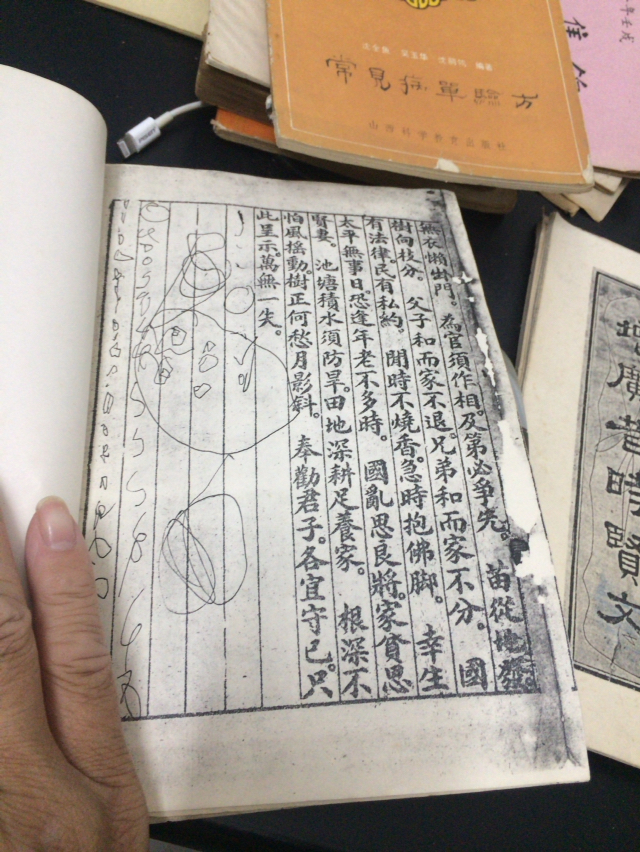 常見病單驗方
山西科学教育出版社
年壬戌
無衣懶出門。為官須作相。及第必爭先。苗從地發。
樹向枝分。父子和而家不退。兄弟和而家不分。國
有法律。民有私約。閒時不燒香。急時抱佛脚。幸生
太平無事日。恐逢年老不多時。國亂思良將。家貧思
賢妻。池塘積水須防旱。田地深耕足養家。根深不
怕風搖動。樹正何愁月影斜。奉勸君子。各宜守己。只
此呈示。萬無一失。
增廣昔時賢文